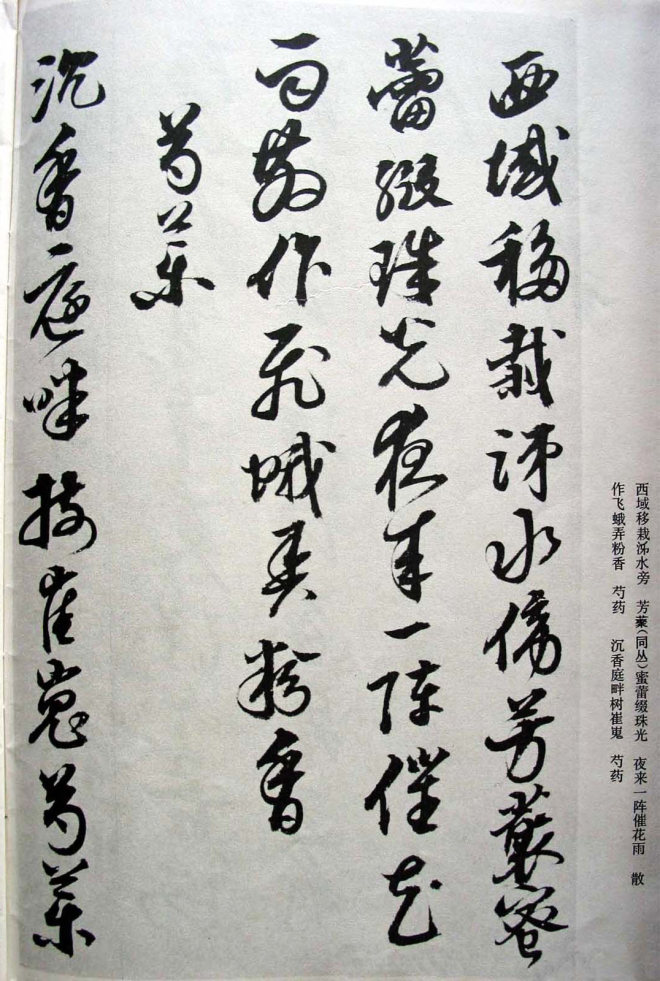 西域移栽泲水旁 芳藂(同丛)蜜蕾缀珠光 夜来一阵催花雨 散
作飞蛾弄粉香 芍药 沉香庭畔树崔嵬 芍药
西域移栽泲水傍芳藂蜜
蕾缀珠光夜来一阵催花
雨散作飞蛾弄粉香
芍药
沉香庭畔树崔嵬芍药